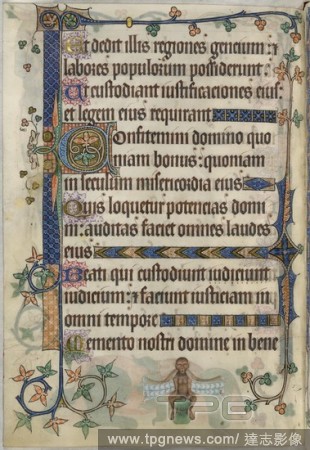 Et dedit illis regiones gencium: ⁊
labores populorum possiderunt:
Ut custodiant iustificaciones eius
et legem eius requirant
Confitemini domino quo
niam bonus: quoniam
in seculum misericordia eius
Quis loquetur potencias domi
ni: auditas faciet omnes laudes
eius
Beati qui custodiunt iudicium
iudicium: ⁊ faciunt iusticiam in
omni tempore
Memento nostri domine in bene
TPG
www.tpgnews.com/ 達志影像